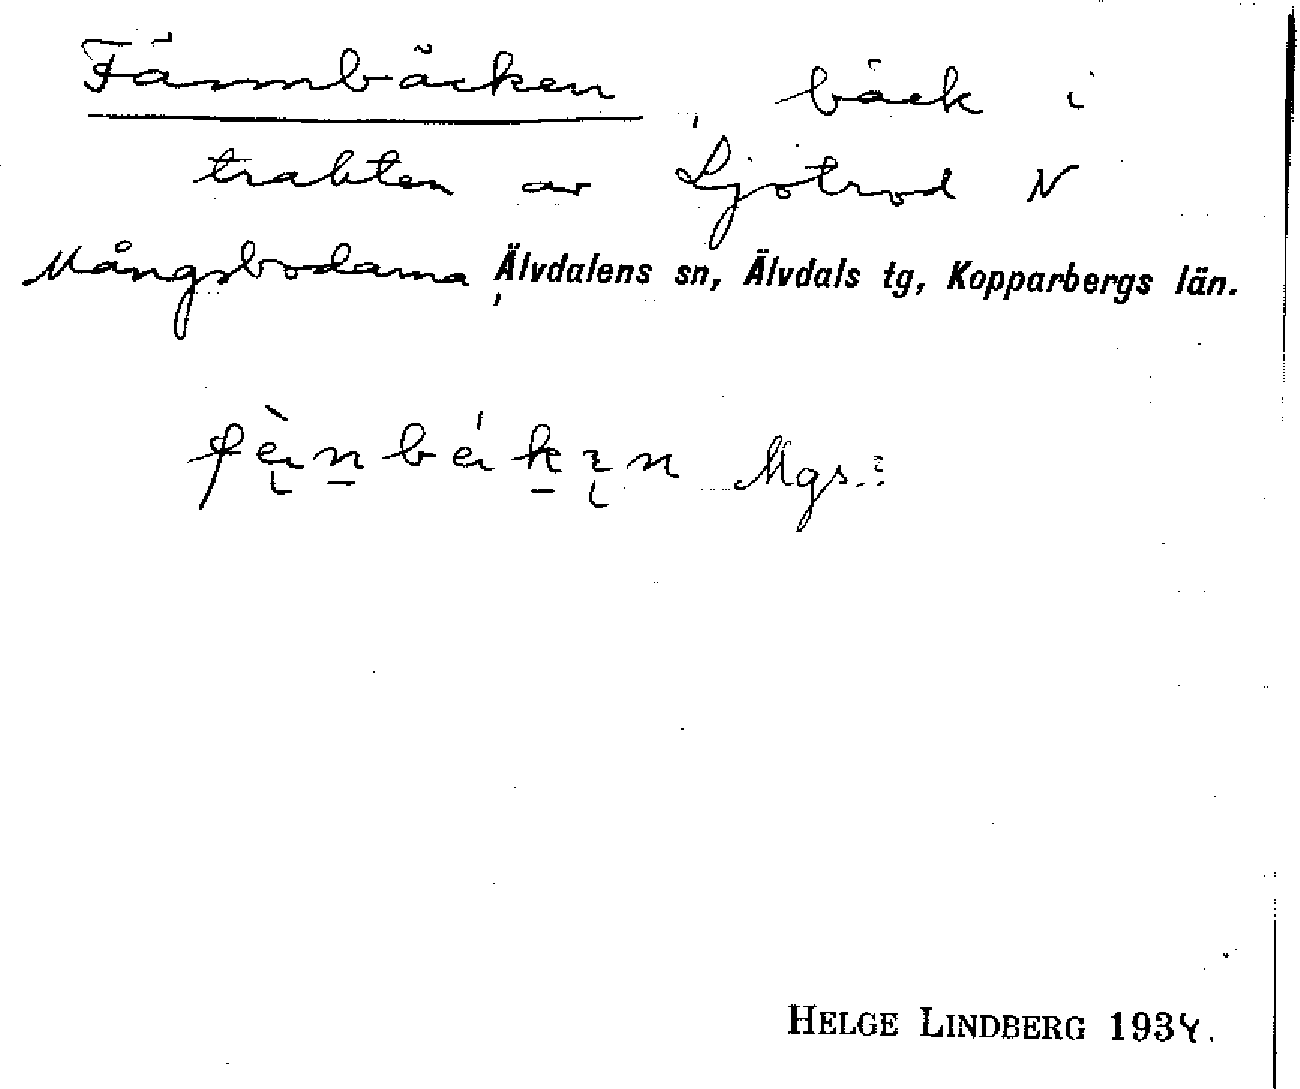 Fännbäcken, bäck i
trakten av Ljötrod N
Mångsbodarna, Älvdalens sn, Älvdals tg, Kopparbergs län.
Mgs.
HELGE LINDBERG 1934.